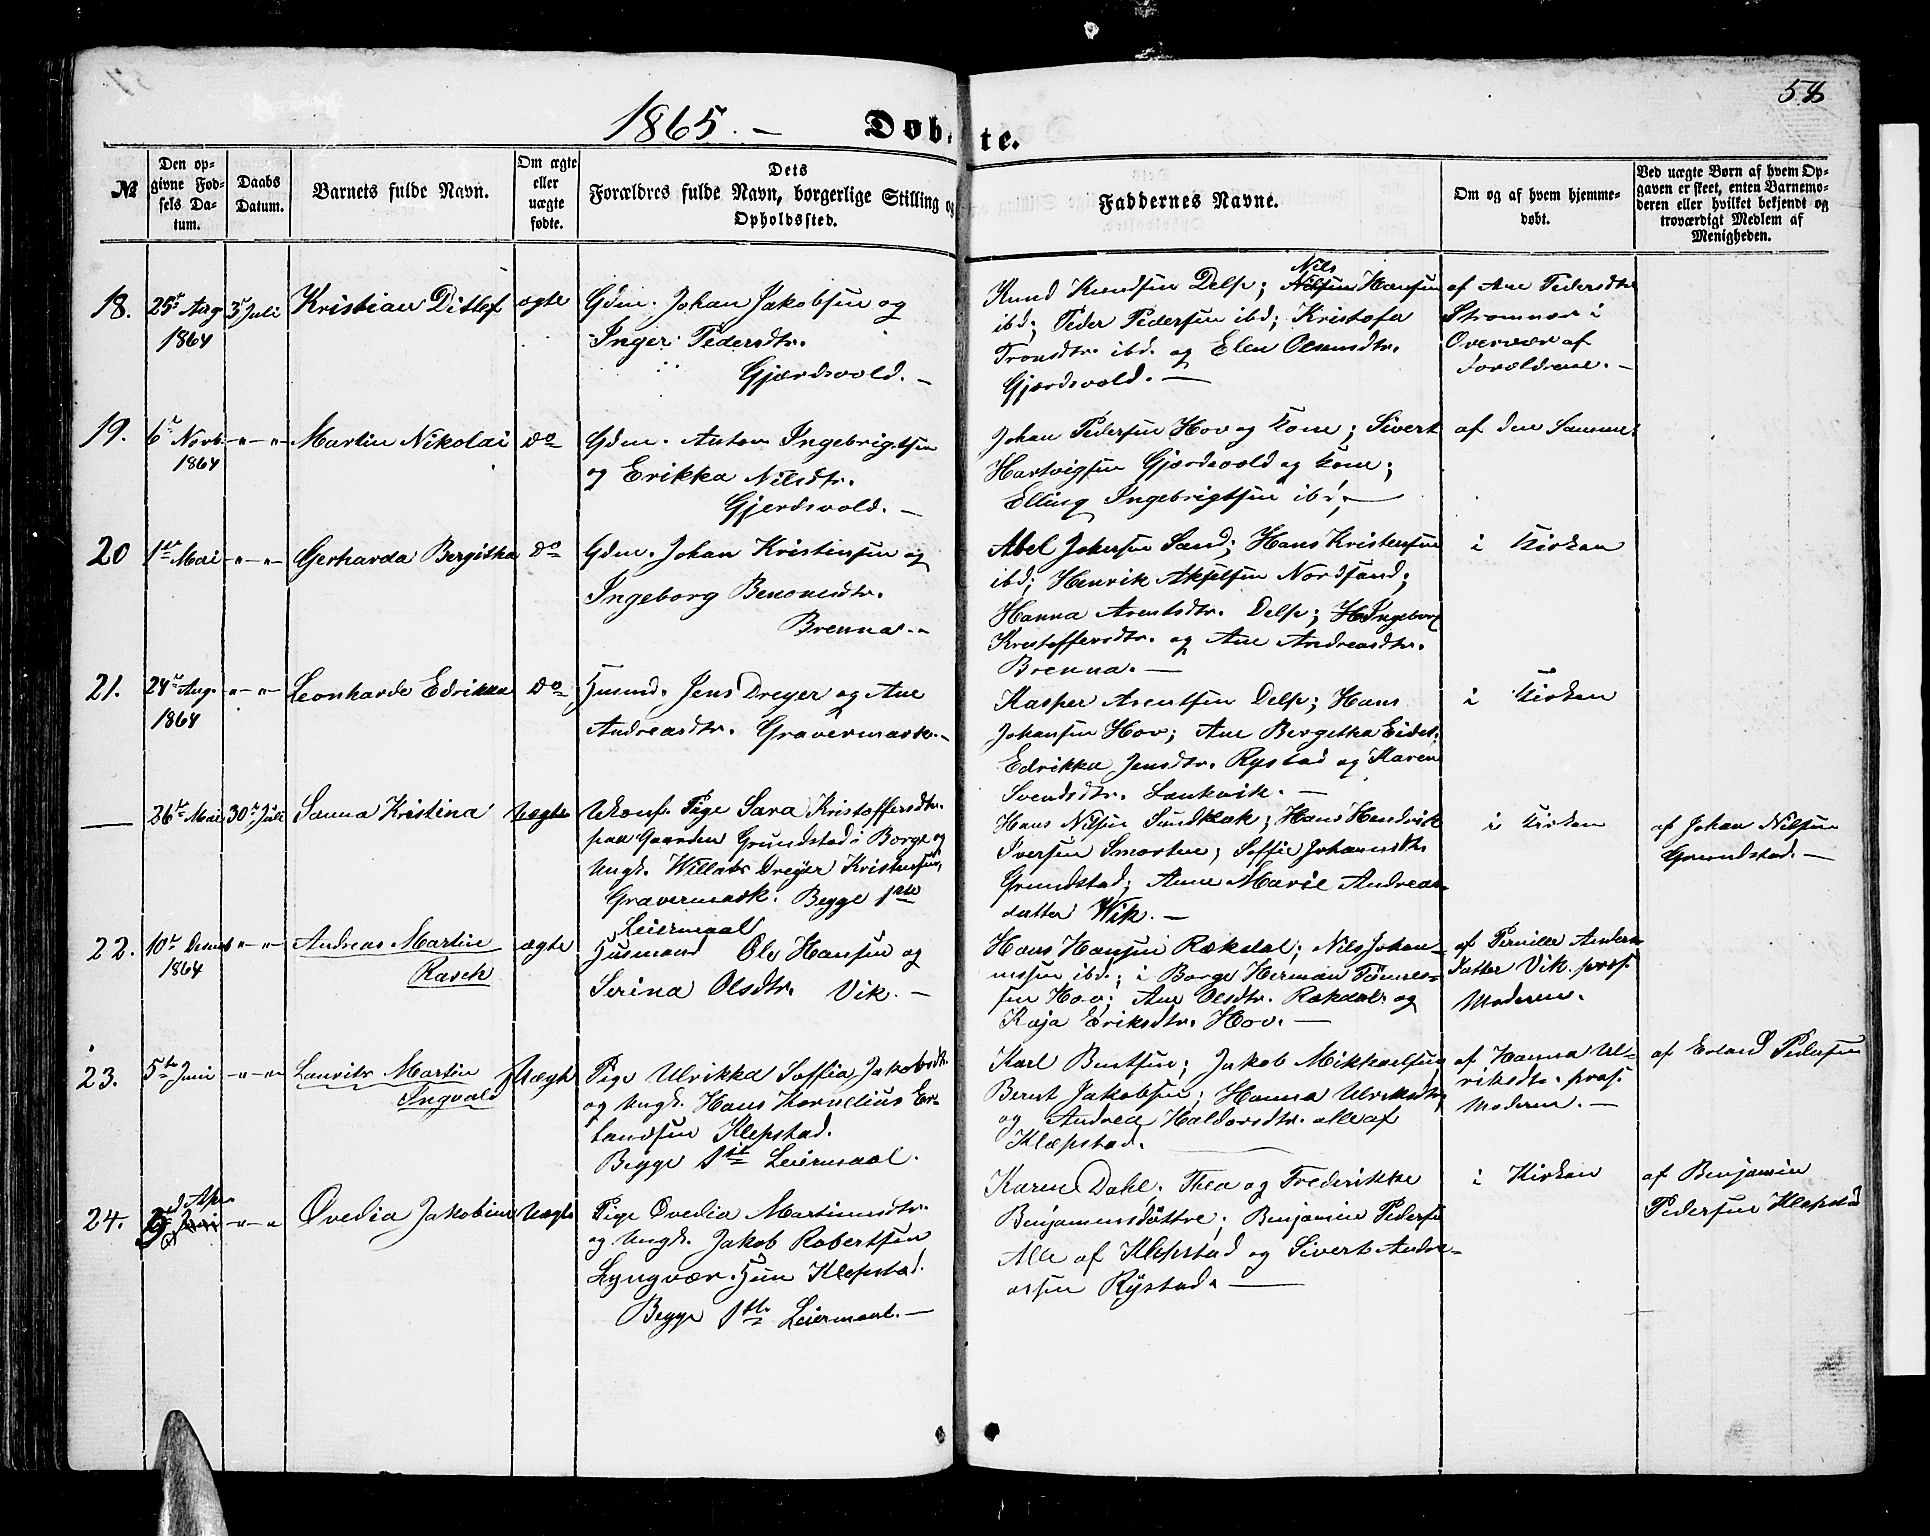 58
1865. – Døbte.
№
Den opgivne Fødsels Datum.
Daabs Datum.
Barnets fulde Navn.
Om ægte eller uægte fødte.
Dets Forældres fulde Navn, borgerlige Stilling og Opholdssted.
Faddernes Navne.
Om og af hvem hjemmedøbt.
Ved uægte Børn af hvem Opgaven er skeet, enten Barnemoderen eller hvilket bekjendt og troværdigt Medlem af Menigheden.
18.
25de Aug
1864
3 Juli
Kristian Ditlef
ægte
Gdm. Johan Jakobsen og
Inger Pedersdtr.
Gjærdsvold. –
Knud Knudsen Delp; Nils Hansen
ibd; Peder Pedersen ibd; Kristofa
Tronsdtr. ibd. og Elen Osmundtr.
Gjærdsvold. –
af Ane Pedersdtr
Strømnæs i
Overvær af
Forældrene. –
19.
6te Novb.
1864
–"–"
Martin Nikolai
Do
Gdm. Anton Ingebrigtsen
og Erikka Nilsdtr.
Gjerdsvold. –
Johan Pedersen Hov og Kone; Sivert
Hartvigsen Gjærdsvold og Kone;
Elling Ingebrigtsen ibd. –
af den Samme.
20
1ste Mai
–"–"
Gerharda Bergitha
Do
Gdm. Johan Kristensen og
Ingeborg Benonisdtr.
Brenna. –
Abel Johnsen Sand; Hans Kristensen
ibd; Henrik Akselsen Nordsand;
Hanna Arentsdtr. Delp; Ingeborg
Kristoffersdtr. og Ane Andreasdtr.
Brenna. –
i Kirken
21.
24de Aug.
1864
–"–"
Leonharde Edrikka
Do
Husmd. Jens Dreyer og Ane
Andreasdtr. Gravermark. –
Kasper Arentsen Delp; Hans
Johansen Hov; Ane Bergitha Eidet,
Edrikka Jensdtr. Rystad og Karen
Svendsdtr. Laukvik. –
i Kirken
—
26de Mai
30te Juli
Sanna Kristina
Uægte
Ukonf. Pige Sara Kristoffersdtr.
paa Gaarden Grundstad i Borge og
Ungk. Willats Dreyer Kristensen,
Gravermark. Begge 1ste
Leiermaal
Hans Nilsen Sundklak; Hans Hendrik
Iversen Smorten; Soffie Johansdtr.
Grundstad; Anne Marie Andreas-
datter Wik. –
i Kirken
af Johan Nilsen
Grundstad. –
22.
10de Decmb
1864
–"–"
Andreas Martin
Rasch
ægte
Husmand Ole Hansen og
Serina Olsdtr. Vik. –
Hans Hansen Rækdal; Nils Johan-
nessen ibd.; i Borge Herman Tønnes-
sen Hov; Ane Olsdtr. Rækdal og
Kaja Eriksdtr. Hov. –
af Pernille Anders-
datter Vik. præs.
Moderen.
23.
5te Juni
–"–"
Laurits Martin
Ingvald
Uægte
Pige Ulrikka Soffia Jakobsdtr.
og Ungk. Hans Kornelius Er-
landsen Klepstad.
Begge 1ste Leiermaal.
Karl Bentsen; Jakob Mikkaelsen,
Bernt Jakobsen; Hanna Ulriksdtr,
og Andrea Haldorsdtr. alle af
Klæpstad.
af Hanna Ul-
riksdtr. præs.
Moderen. –
af Erland Pedersen
24.
–"–"
Ovedia Jakobine
Uægte
Pige Ovedia Martinusdtr.
og Ungk. Jakob Robertsen
Lyngvær. Hun Klepstad.
Begge 1ste Leiermaal. –
Karen Dahl, Thea og Frederikke
Benjaminsdøttre; Benjamin Peders
Alle af Klepstad og Sivert Andre-
assen Rystad. –
i Kirken
af Benjamin
Pedersen Klepstad